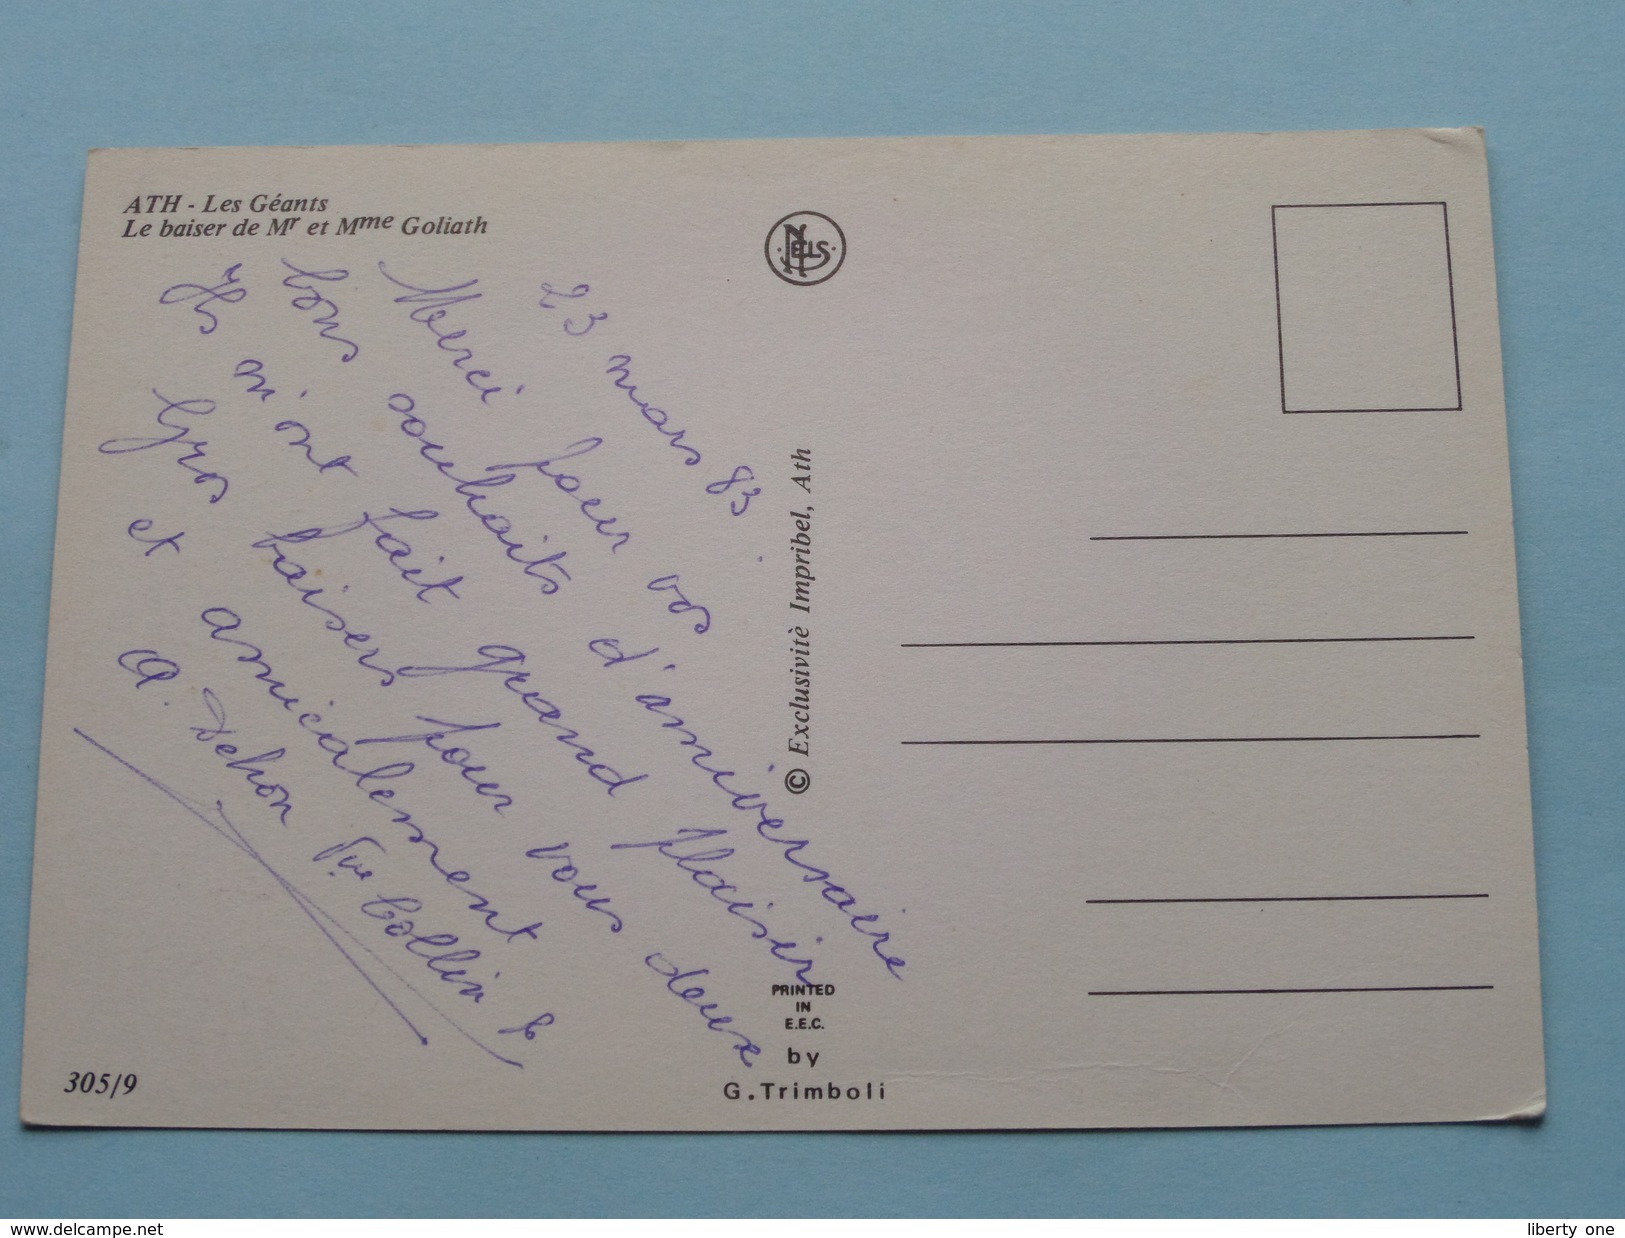 ATH - Les Géants
Le baiser de Mr et Mme Goliath
NELS
23 mars 83
Merci pour vos
bons souhaits d'anniversaire
Ils m'ont fait grand plaisir
Gros baisers pour vous deux
et amicalement
A. Dehon Vve Collin
© Exclusivitè Impribel, Ath
PRINTED
IN
E.E.C.
by
G. Trimboli
305/9
www.delcampe.net
liberty one